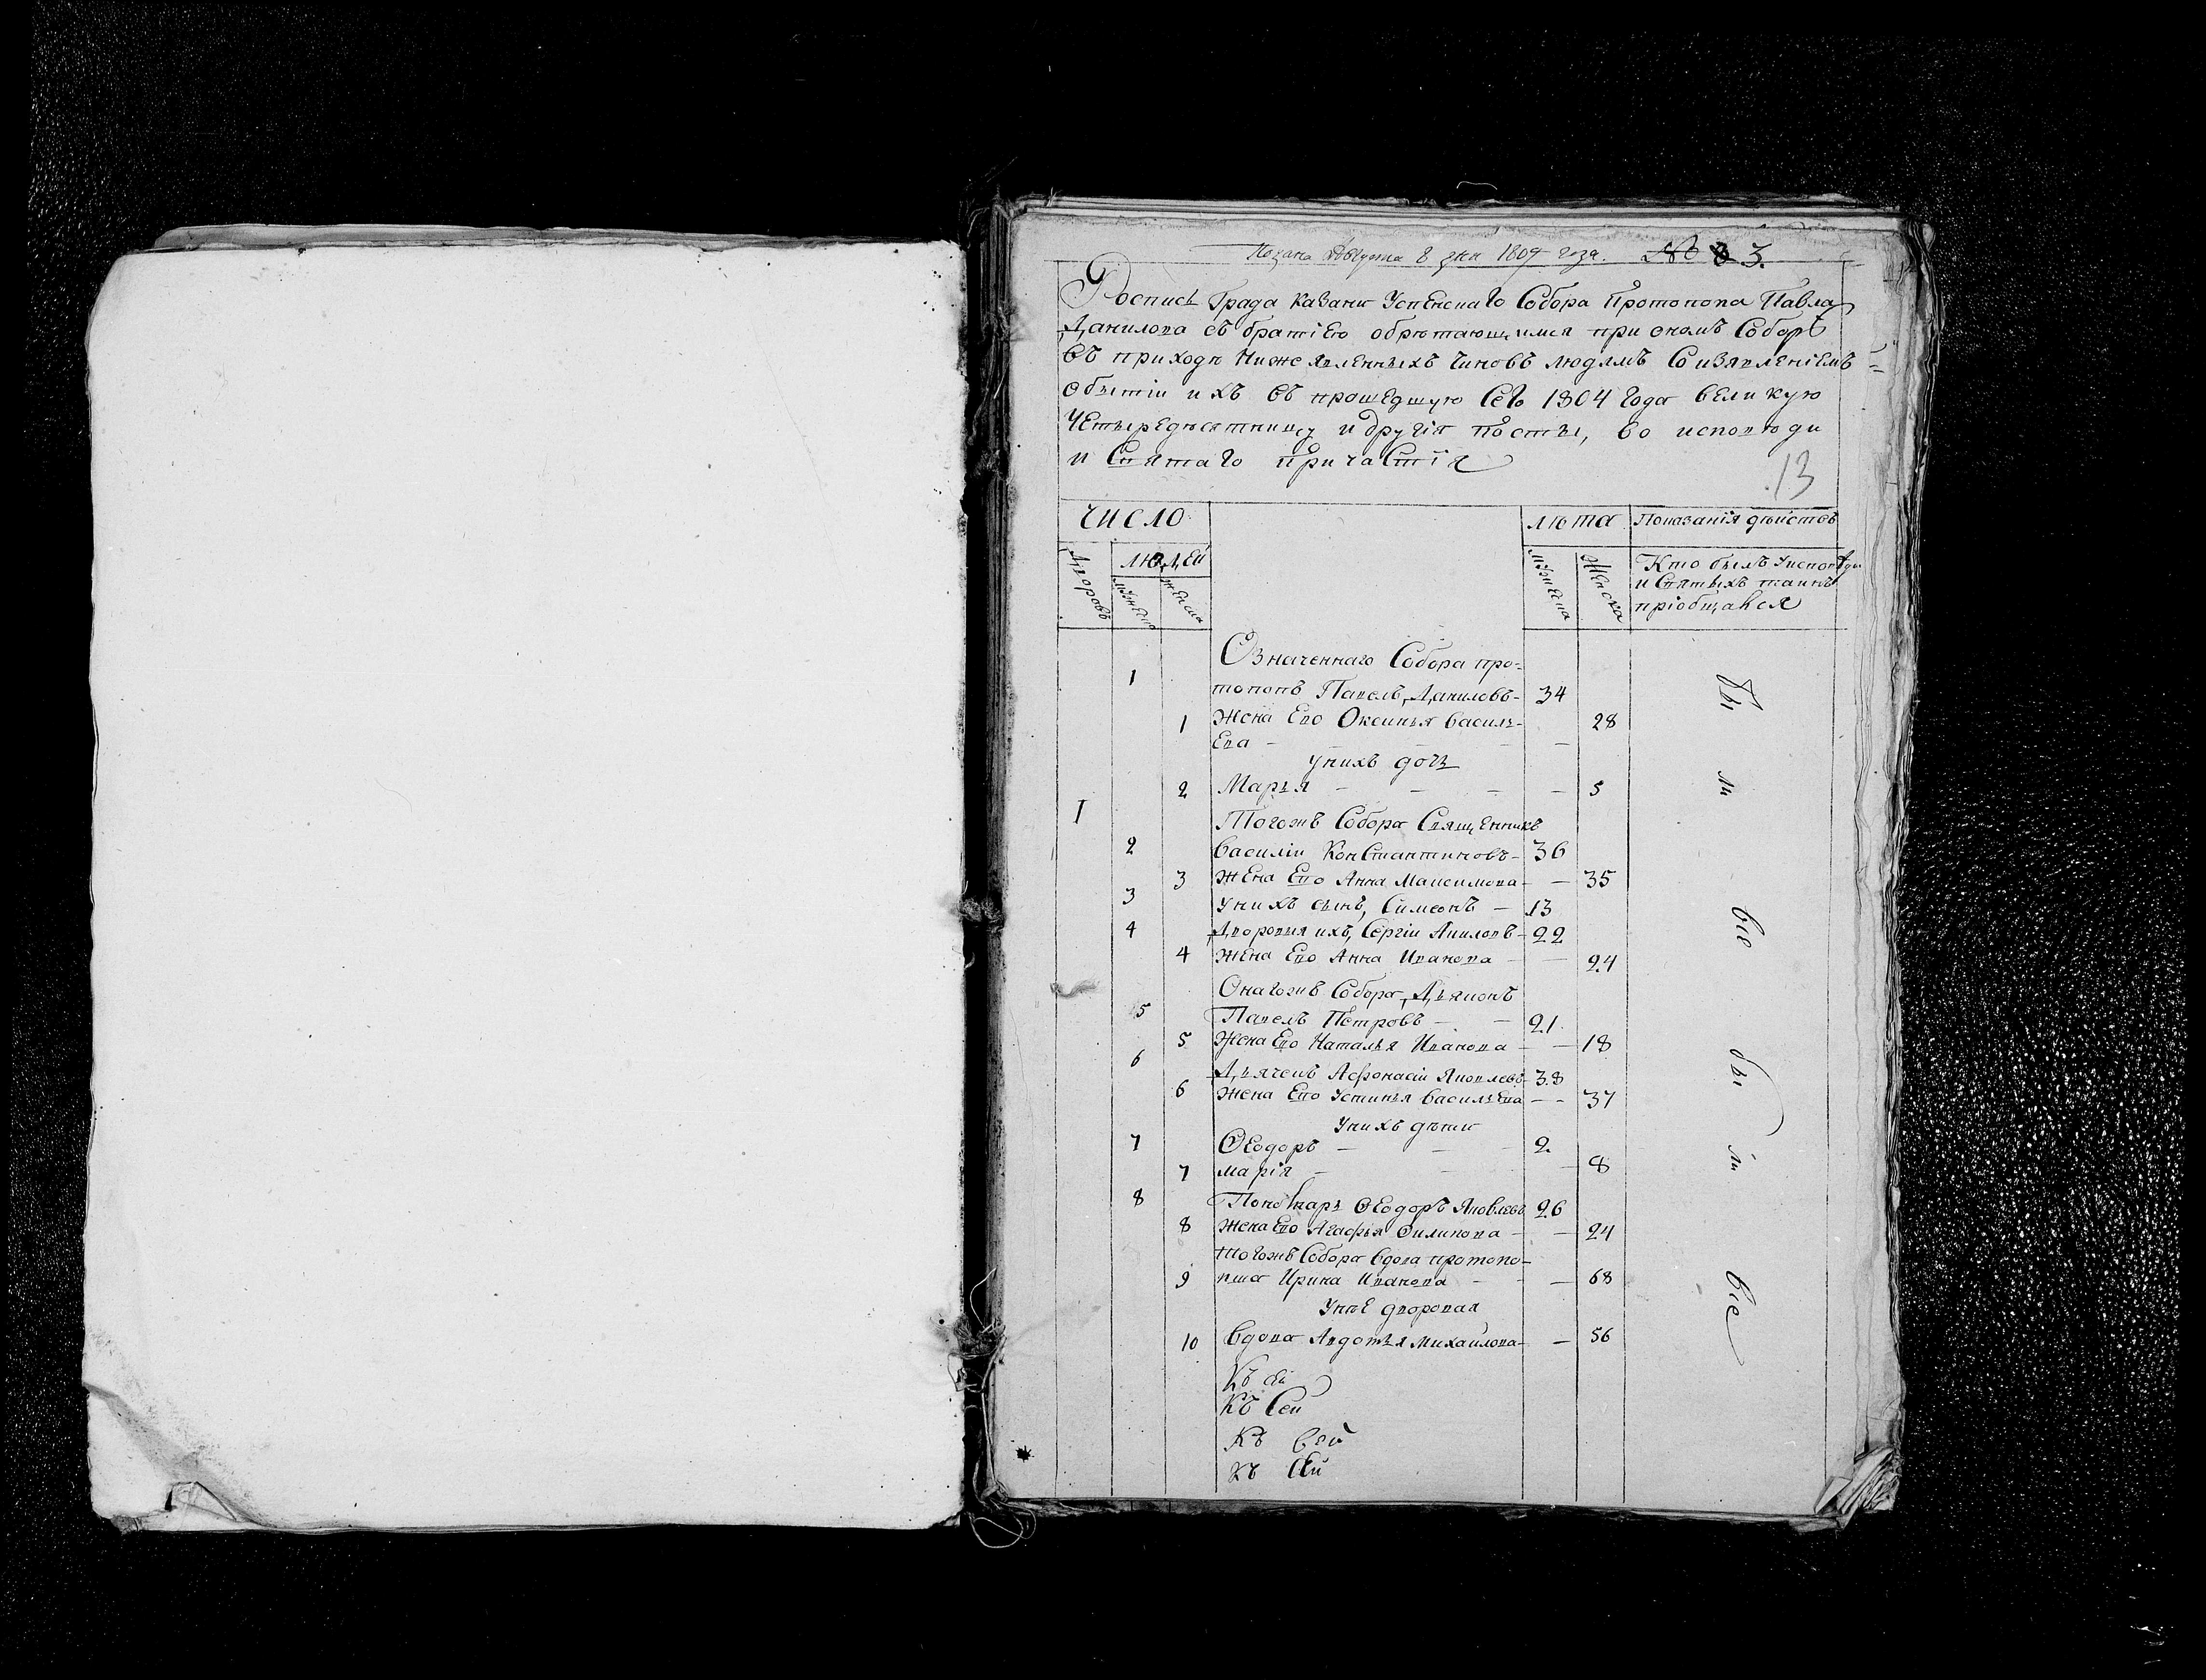 Подана Августа 8 дня 1804 года. № 3.
Роспись Града Казани Успенскаго Собора Протопопа Павла
Данилова съ братіею обрѣтающимся при ономъ Соборѣ
въ приходѣ нижеявленныхъ чиновъ людямъ со изъявленіемъ
обытіи ихъ въ прошедшую сего 1804 года великую
четыредесятницу и другія посты, во исповѣди
и Святаго причастія
13
Число
Дворовъ
людей
мужеска
женска
лѣта
мужеска
женска
Показанія дѣйствъ
Кто былъ уисповѣди
и Святыхъ таинъ
пріобщался
Означеннаго Собора про-
1 топопъ Павелъ Даниловъ - 34
1 Жена Его Оксинья Василь- 28
ева - - - -
у нихъ дочь
2 Марья - - - - 5
I
Тогожъ Собора Священникъ
2 Василіи Константиновъ - 36
3 Жена Его Анна Максимова - - 35
3 У нихъ сынъ, Симеонъ - 13
4 Дворовыя ихъ, Сергіи 22
4 Жена Его Анна Иванова - - 24
Онагожъ Собора Дьяконъ
5 Павелъ Петровъ - - 21
5 Жена Его Наталья Иванова - - 18
6 Дьячекъ Афонасіи Яковлевъ - 38
6 Жена Его Устинья Васильева - - 37
У нихъ дѣти
7 Ѳеодоръ - - - 2
7 Марія - - - 8
8 Пономарь Ѳеодоръ Яковлевъ 26
8 Жена Его Агафья Филипова - - 24
Тогожъ Собора вдова протопо-
9 пша Ирина Иванова - - - 68
У нѣе дворовая
10 Вдова Авдотья Михайлова - - 56
Къ сей
Къ Сей
Къ сей
Къ сей
бы
ли
все
бы
ли
все